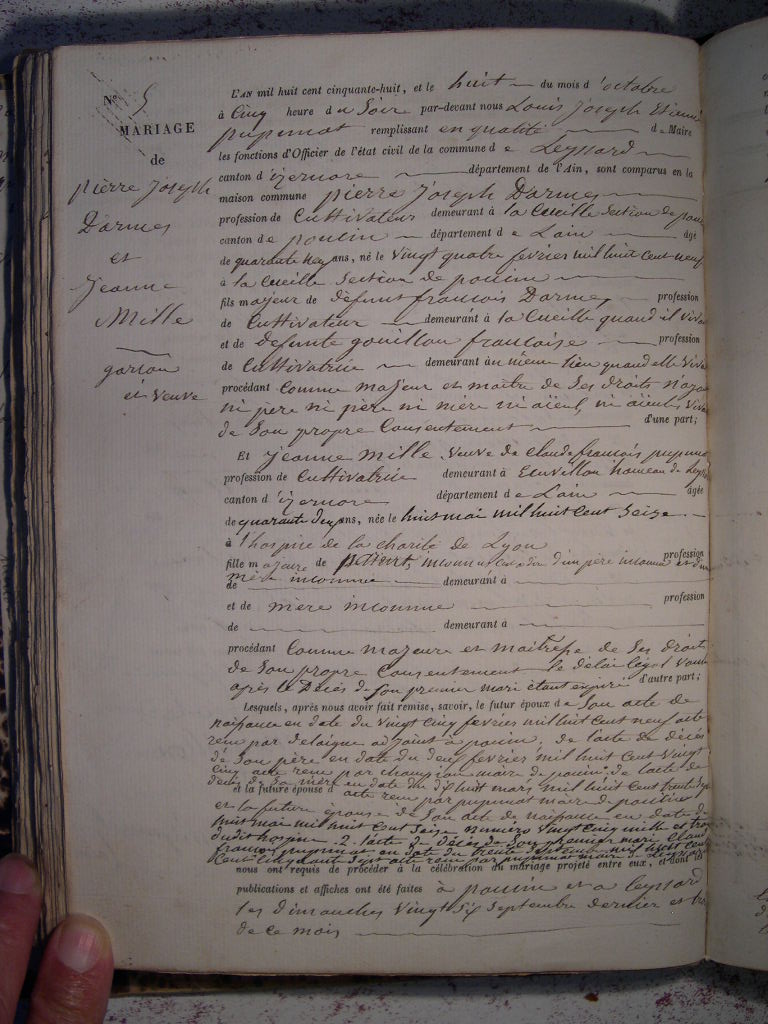 N° 5
MARIAGE
de
pierre joseph
Darmes
et
Jeanne
Mille
garcon
et veuve
L'AN mil huit cent cinquante-huit, et le huit du mois d'octobre
à Cinq heure du Soir par-devant nous Louis Joseph Etienne
pupunat remplissant en qualité de Maire
les fonctions d'Officier de l'état civil de la commune de Leyssard
canton d'izernore département de l'Ain, sont comparus en la
maison commune pierre Joseph Darmes
profession de Cultivateur demeurant à la Cueille Section de
canton de poncin département de Lain âgé
de quarante neuf ans, né le vingt quatre fevrier mil huit Cent neuf
à la Cueille Section de poncin
fils majeur de defunt francois Darmes profession
de Cultivateur demeurant à la Cueille quand il
et de defunte gouillon francoise profession
de Cultivatrice demeurant au même lieu quand elle
procédant Comme majeur et maitre de Ses droits
ni pere ni père ni mère ni aïeul, ni aïeules
de Son propre Consentement d'une part;
Et Jeanne Mille Veuve de claude francois
profession de Cultivatrice demeurant à hameau de
canton d'izernore département de Lain âgée
de quarante deux ans, née le huit mai mil huit Cent Seize
à l'hospice de la charité de Lyon
fille majeure de inconnu d'un père inconnu et d'une profession
de mère inconnue demeurant à
et de mère inconnue profession
de demeurant à
procédant Comme majeure et maitresse de Ses droits
de Son propre Consentement le délai légal
après le Décès de Son premier mari étant expiré d'autre part;
Lesquels, après nous avoir fait remise, savoir, le futur époux de Son acte de
naissance en date du vingt Cinq fevrier mil huit Cent neuf acte
recu par delaigue adjoint à poncin, de lacte de décès
de Son père en date du deux fevrier mil huit Cent vingt
Cinq acte recu par champion maire de poncin; de lacte de
décès de Sa mère en date du dix huit mars mil huit Cent trente
et la future épouse d acte recu par pupunat maire de poncin
et la future épouse de Son acte de naissance en date du
huit mai mil huit Cent Seize numéro vingt Cinq mille et
dudit hospice 2. lacte de Décès de Son premier mari
francois pupunat en date du trente mil huit Cent
Cent Cinquante Sept acte recu par pupunat maire de Leyssard
nous ont requis de procéder à la célébration du mariage projeté entre eux, et dont les
publications et affiches ont été faites à poncin et à leyssard
les dimanches vingt Six Septembre dernier et
de ce mois